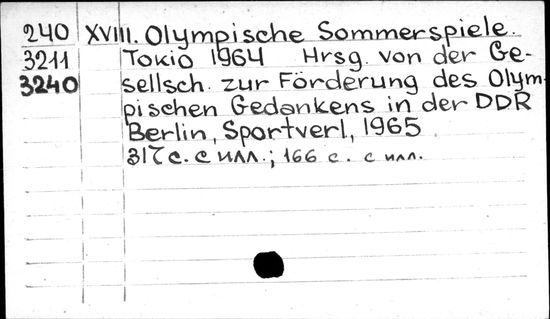 240 XVIII. Olympische Sommerspiele.
3211 Tokio 1964 Hrsg. von der Ge-
3240 sellsch. zur Förderung des Olym-
pischen Gedankens in der DDR
Berlin, Sportverl, 1965
317 с. с илл.; 166 с. с илл.